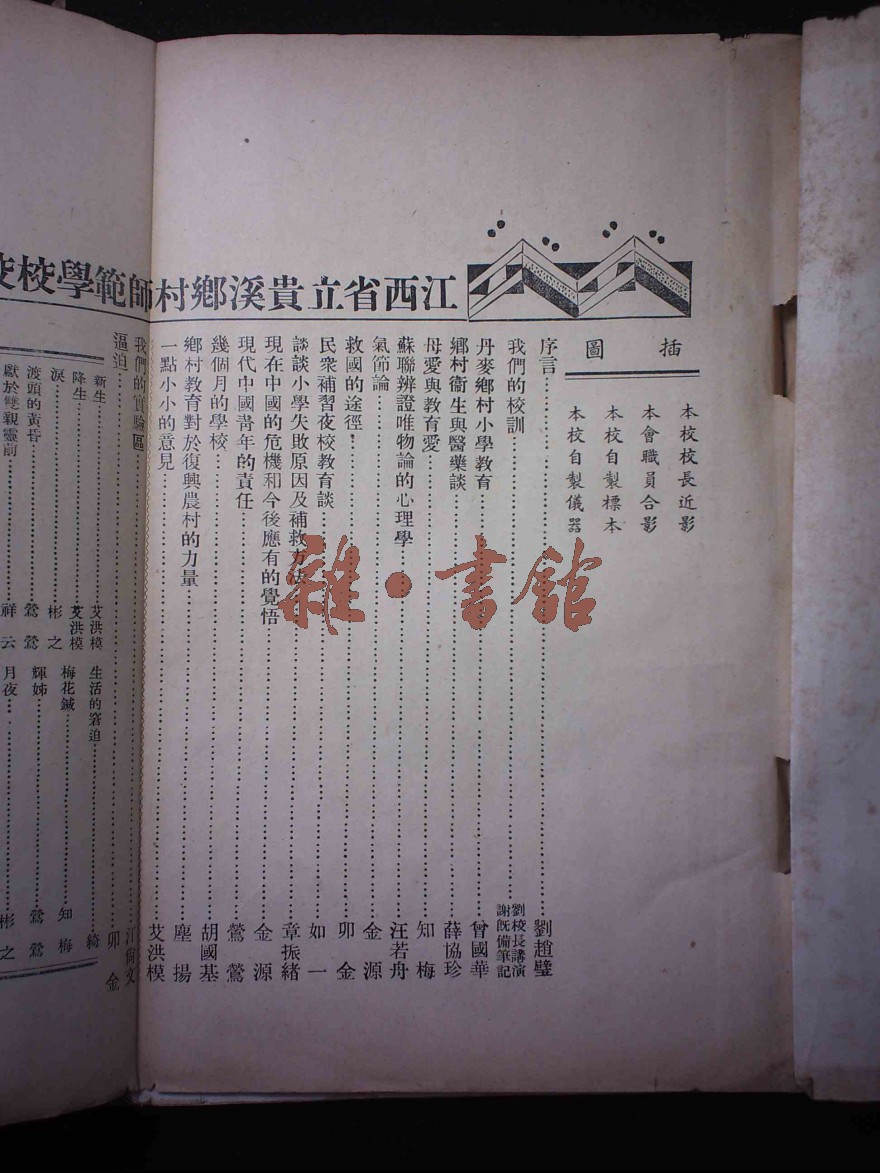 江西省立貴溪鄉村師範學校
插圖
本校校長近影
本會職員合影
本校自製標本
本校自製儀器
序言 劉趙璧
我們的校訓 劉校長講演 謝旣備筆記
丹麥鄉村小學教育 曾國華
鄉村衞生與醫藥談 薛協珍
母愛與教育愛 知梅
蘇聯辨證唯物論的心理學 汪若舟
氣節論 金源
救國的途徑 卯金
民衆補習夜校教育談 如一
談談小學失敗原因及補救方法 章振緒
現在中國的危機和今後應有的覺悟 金源
現代中國靑年的責任 鶯鶯
幾個月的學校 胡國基
鄉村教育對於復興農村的力量 塵揚
一點小小的意見 艾洪模
我們的實驗區 汪尙文
逼迫 卯金
新生 艾洪模
降生 艾洪模
淚 彬之
渡頭的黃昏 鶯鶯
獻於雙親靈前 祥云
生活的窘迫 綺
梅花鍼 知梅
輝姊 鶯鶯
月夜 彬之
雜·書館